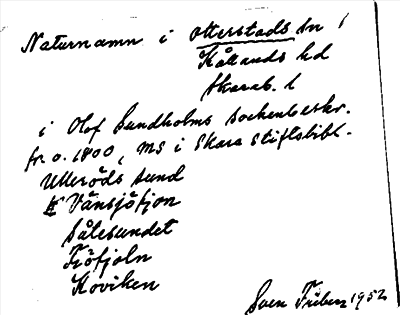 Naturnamn i Otterstads sn
Kållands hd
Skarab. l
i Olof Sundholms sockenbeskr.
fr. o. 1800, MS i Skara Stiftsbibl.
Ulleröds sund
Vänsjöfjon
Sålesundet
Fjöfjoln
Koviken
Sven Friberg 1952